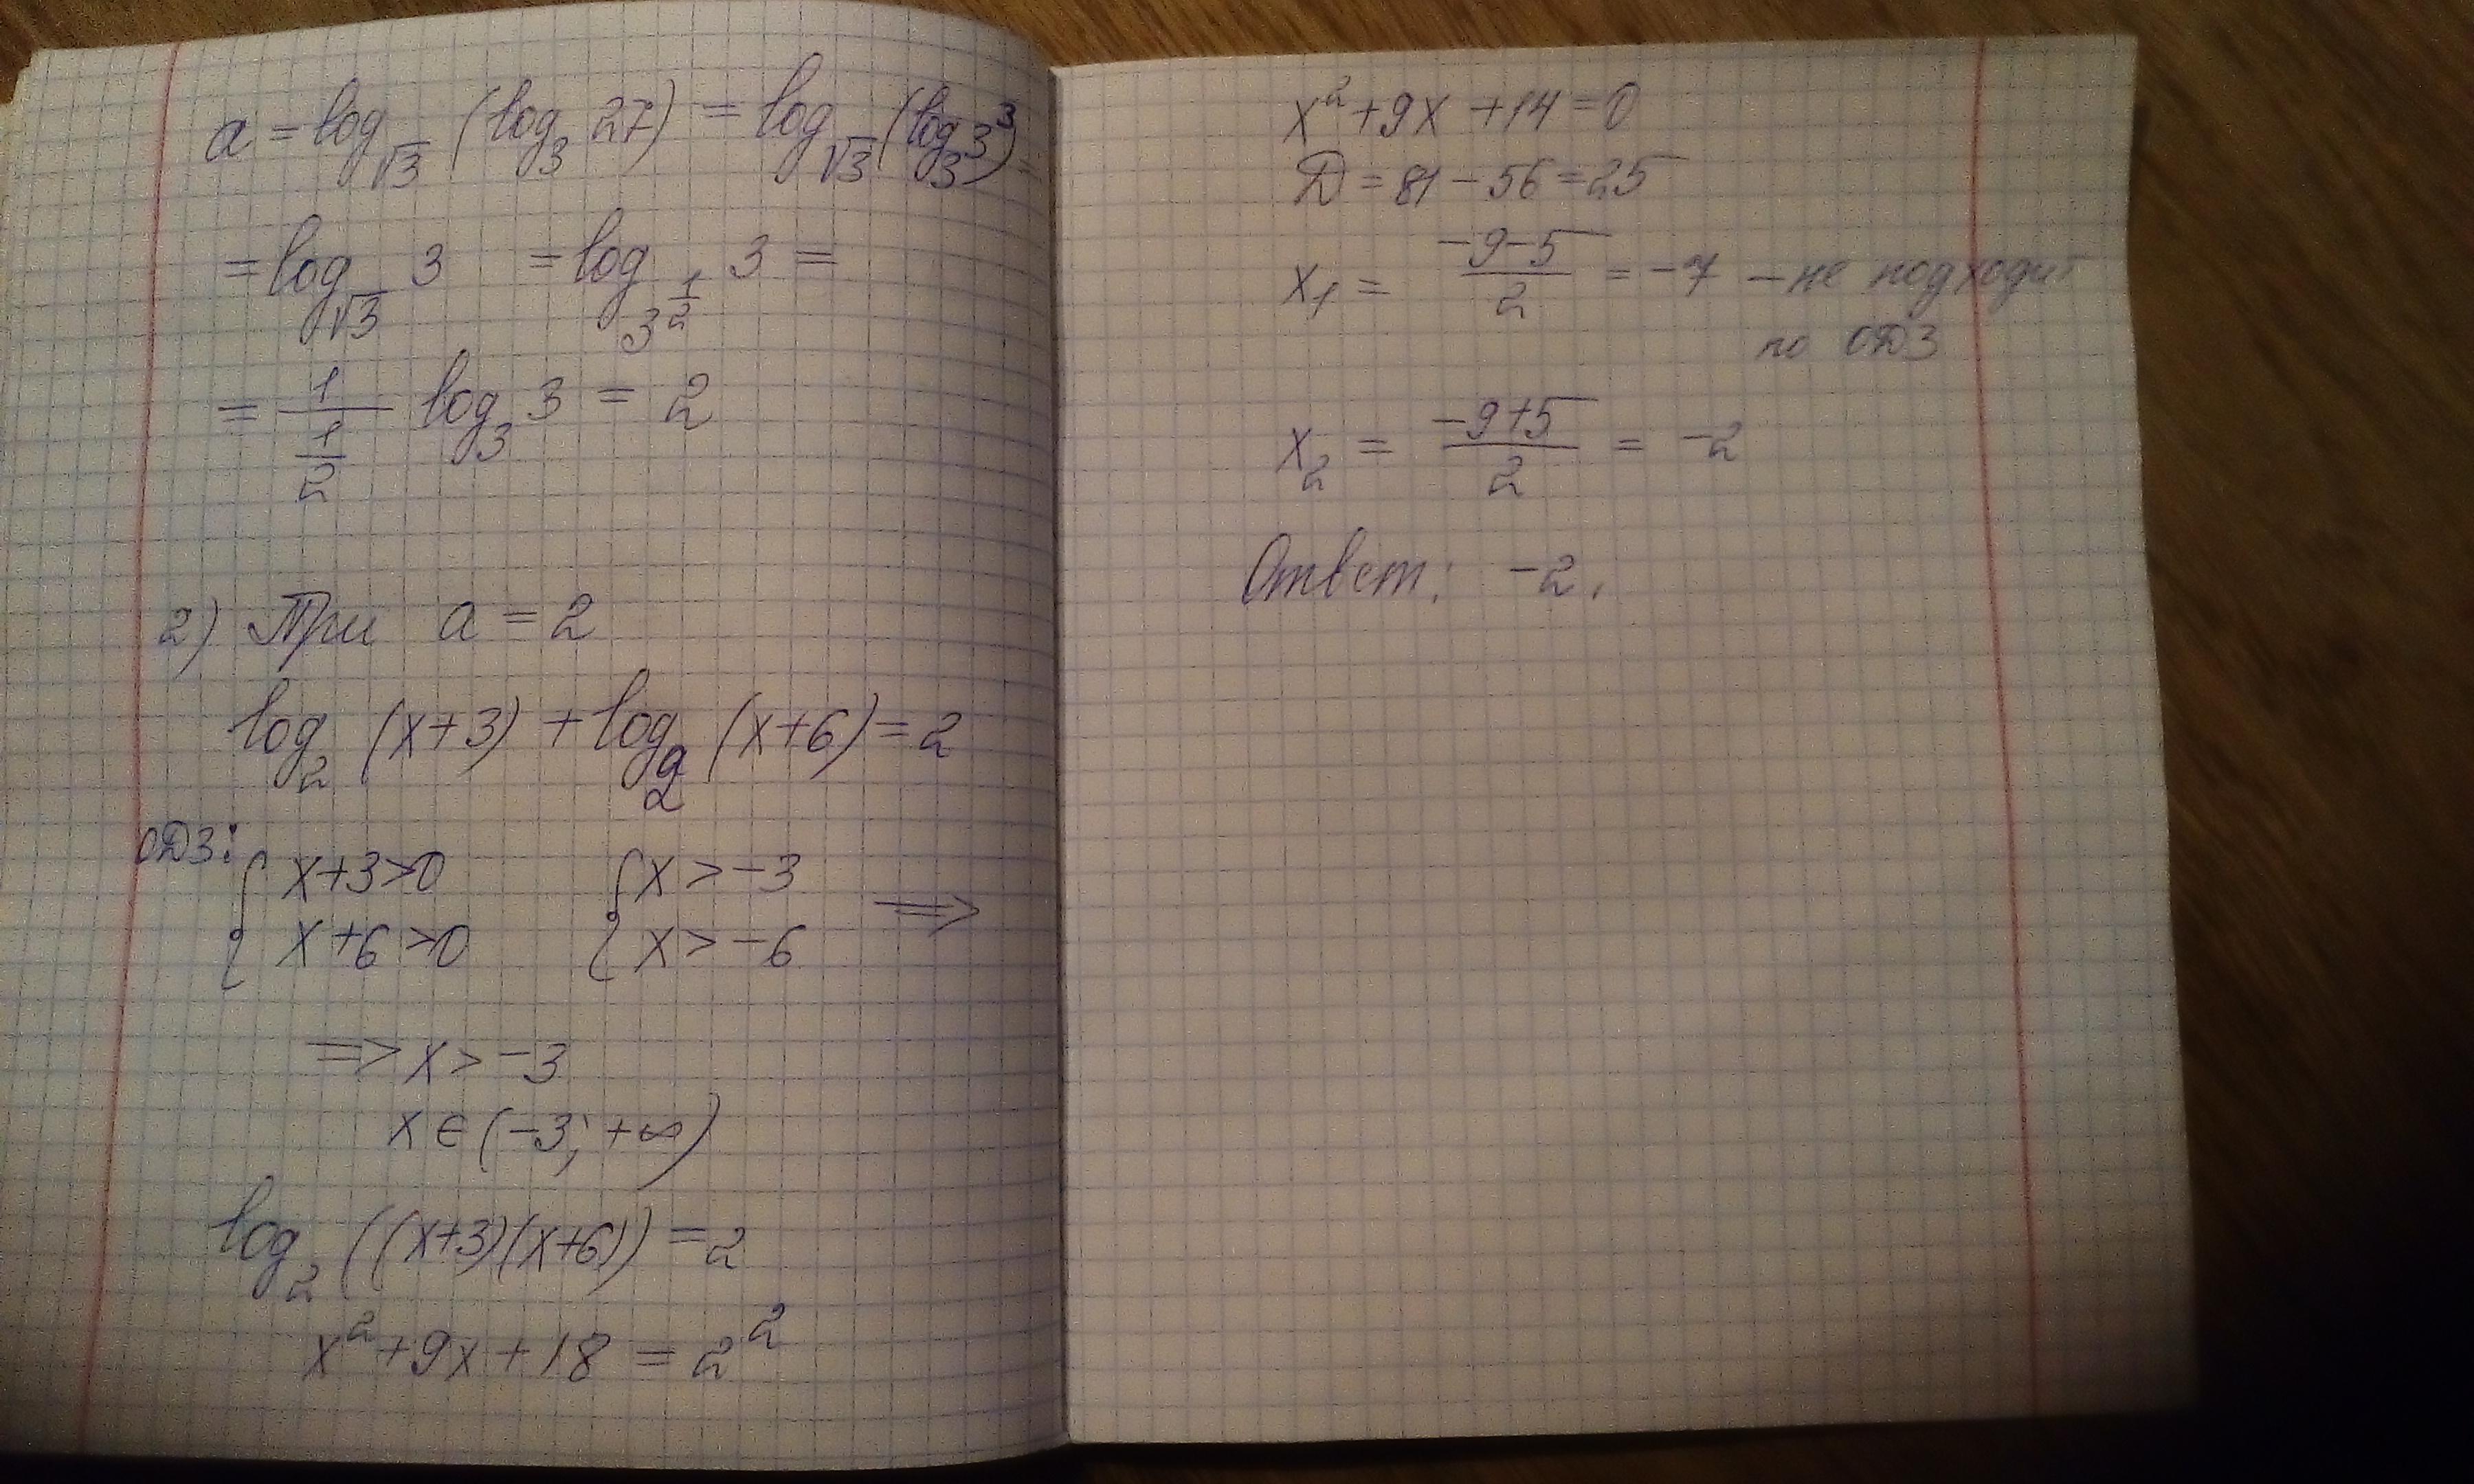 a = log_√3 (log_3 27) = log_√3 (log_3 3^3) =
= log_√3 3 = log_3^(1/2) 3 =
= 1/(1/2) log_3 3 = 2
2) При a = 2
log_2 (x+3) + log_2 (x+6) = 2
ОДЗ:
{ x+3>0 { x > -3 ⟹
{ x+6>0 { x > -6
⟹ x > -3
x ∈ (-3; +∞)
log_2 ((x+3)(x+6)) = 2
x² + 9x + 18 = 2²
x² + 9x + 14 = 0
Д = 81 - 56 = 25
x_1 = (-9-5)/2 = -7 - не подходит
по ОДЗ
x_2 = (-9+5)/2 = -2
Ответ: -2.